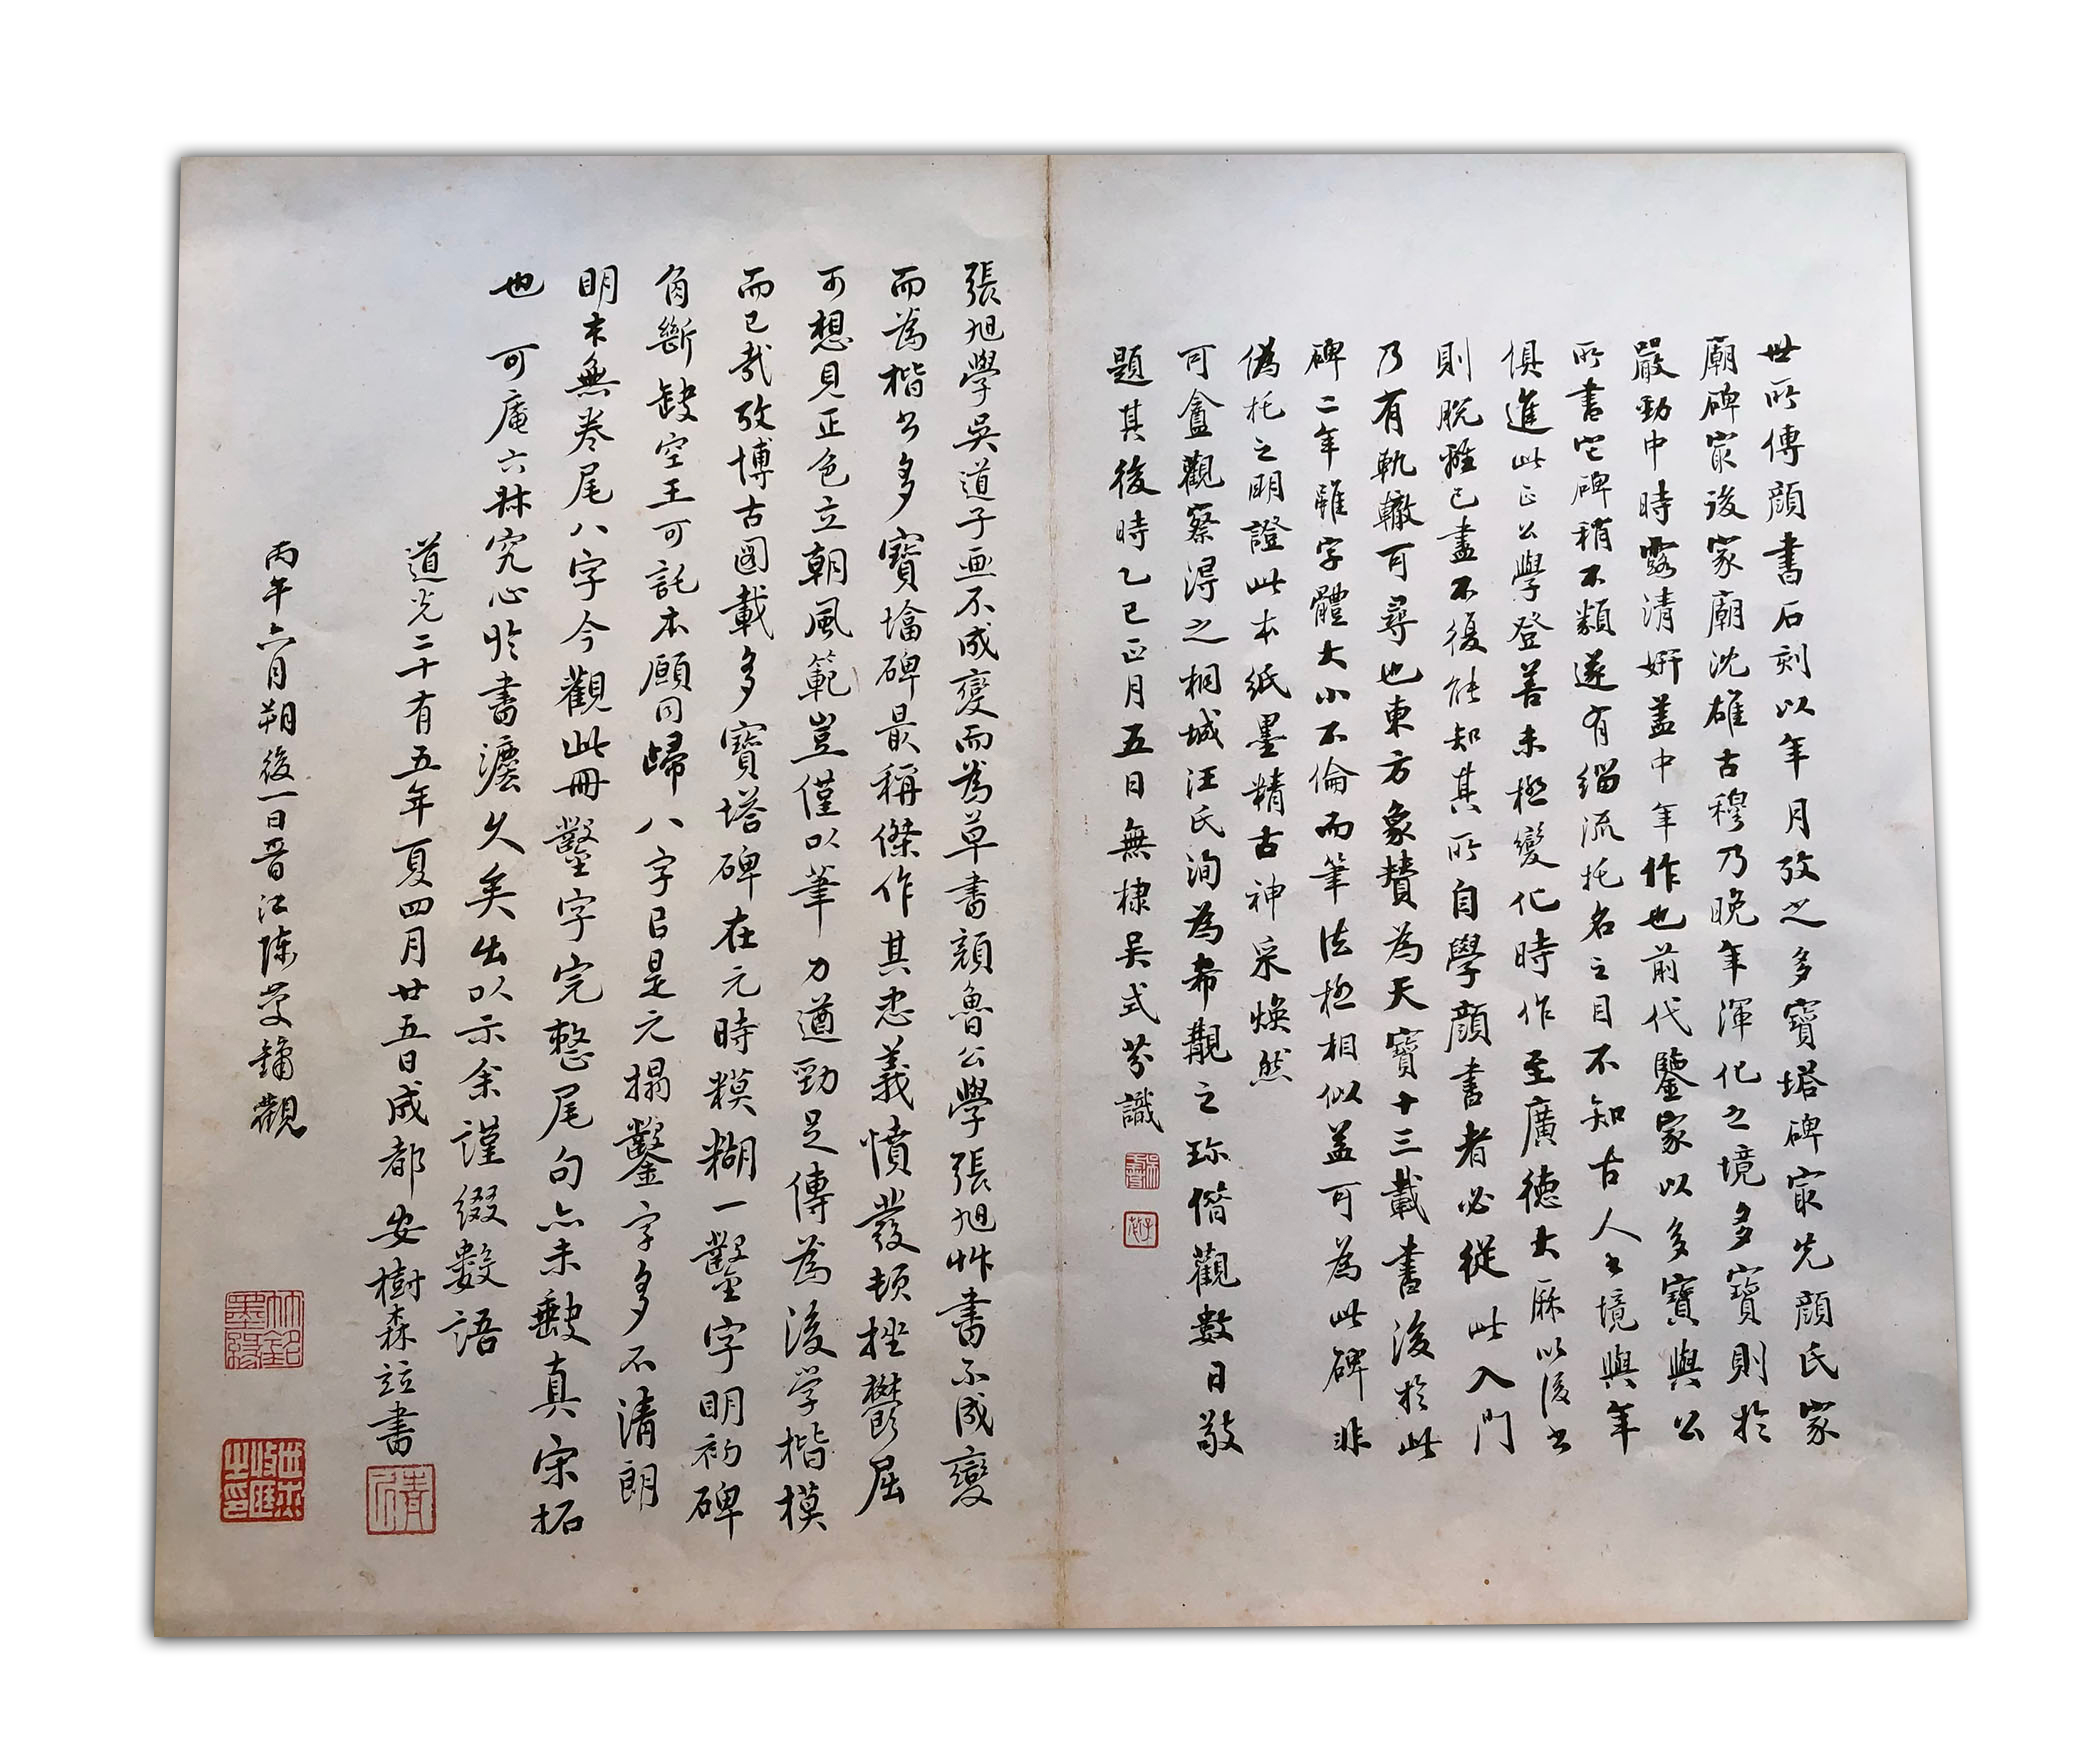 世所傳顏書石刻以年月攷之多寶塔碑㝡先顏氏家
廟碑㝡後家廟沈雄古穆乃晚年渾化之境多寶則於
嚴勁中時露清妍蓋中年作也前代鑒家以多寶與公
所書它碑稍不類遂有緇流托名之目不知古人之境與年
俱進此正公學登善未極變化時作至廣德大厤以後書
則脫離已盡不復能知其所自學顏書者必從此入門
乃有軌轍可尋也東方象贊為天寶十三載書後於此
碑二年雖字體大小不倫而筆法極相似蓋可為此碑非
偽托之明證此本紙墨精古神采煥然
可盦觀察得之桐城汪氏洵為希覯之珎借觀數日敬
題其後時乙巳正月五日無棣吳式芬識
張旭學吳道子画不成變而為草書顏魯公學張旭艸書不成變
而為楷公多寶墖碑最稱傑作其忠義憤發頓挫鬱屈
可想見正色立朝風範豈僅以筆力遒勁足傳為後學楷模
而已哉攷博古圖載多寶塔碑在元時糢糊一鑿字明初碑
角斷缺空王可託本願同歸八字已是元搨鑿字多不清朗
明末無卷尾八字今觀此冊鑿字完整尾句亦未缺真宋拓
也 可庵六兄究心於書灋久矣出以示余謹綴數語
道光二十有五年夏四月廿五日成都安樹森竝書
丙午六月朔後一日晉江陳慶鏞觀